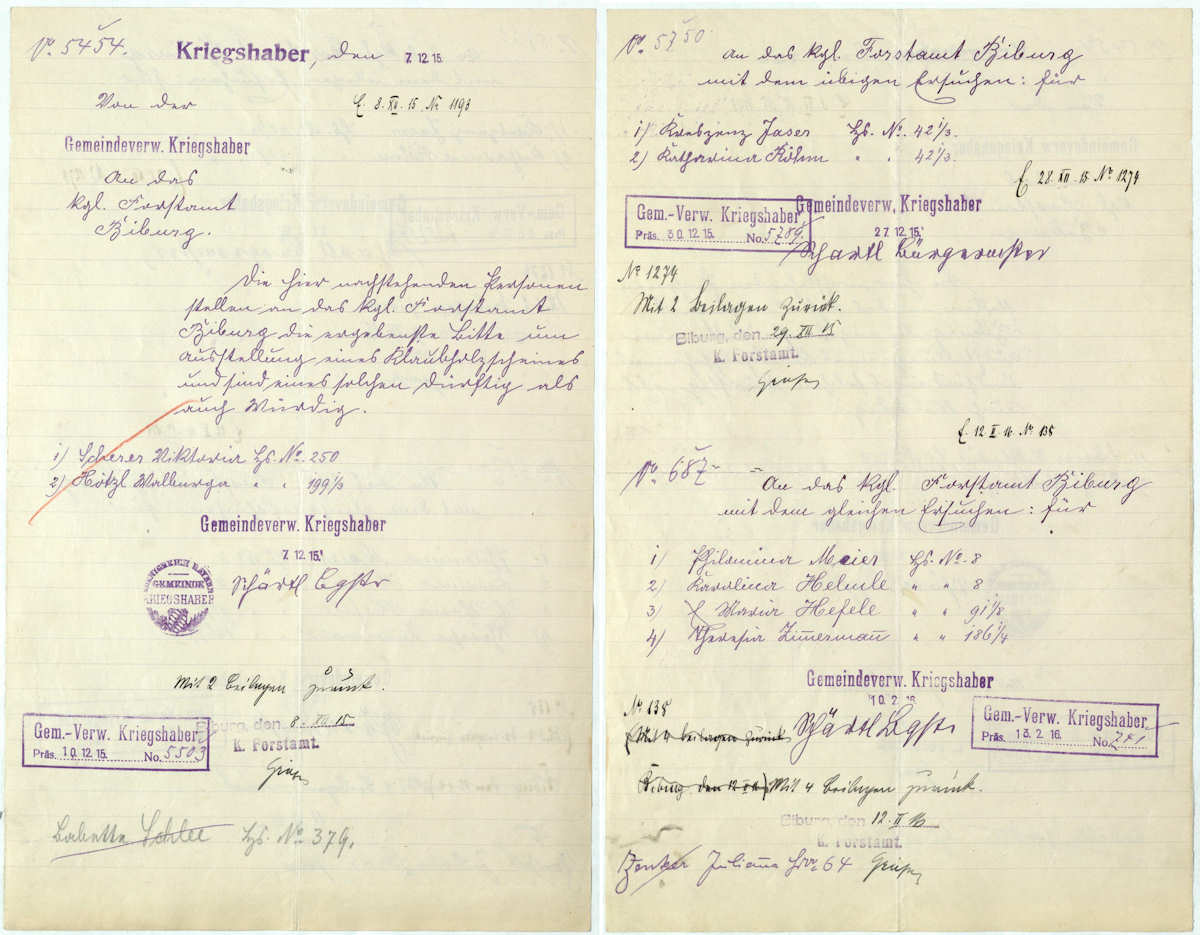 No. 5454.
Kriegshaber, den 7.12.15.
Von der
E. 8. XII. 15 No 1193
Gemeindeverw. Kriegshaber
An das
kgl. Forstamt
Biburg.
Die hier nachstehenden Personen
stellen an das kgl. Forstamt
Biburg die ergebenste Bitte um
Ausstellung eines Klaubholzscheines
und sind eines solchen dürftig als
auch Würdig.
1) Scherer Viktoria Hs. No. 250
2) Hötzl Walburga " " 199 1/3
Gemeindeverw. Kriegshaber
7.12.15.
KÖNIGREICH BAYERN
GEMEINDE
KRIEGSHABER
Schärtl Bgstr
Mit 2 Beilagen zurück.
Biburg, den 8. XII. 15
K. Forstamt.
Gem.-Verw. Kriegshaber
Präs. 10.12.15. No. 5503
Babette Schlee Hs. No 379.
No. 5750
An das kgl. Forstamt Biburg
mit dem übigen Ersuchen: für
1) Kreszenz Jaser Hs. No. 42 1/3.
2) Katharina Böhm " " 42 1/3.
E 28. XII. 15 No 1274
Gemeindeverw. Kriegshaber
27.12.15.
Gem.-Verw. Kriegshaber
Präs. 30.12.15. No. 5789.
Schärtl Bürgermeister
No 1274
Mit 2 Beilagen zurück.
Biburg, den 29. XII 15
K. Forstamt.
E. 12. II. 16 No. 138
No. 687
An das kgl. Forstamt Biburg
mit dem gleichen Ersuchen: für
1) Philomina Meier Hs. No. 8
2) Karolina Helmle " " 8
3) Maria Hefele " " 91 1/8
4) Theresia Zimmermann " " 186 1/4
Gemeindeverw. Kriegshaber
10.2.16.
No 138
Schärtl Bgstr
Gem.-Verw. Kriegshaber
Präs. 13.2.16. No. 741
(Mit 4 Beilagen zurück
Biburg den 12 II 16) Mit 4 Beilagen zurück.
Biburg, den 12. II 16
K. Forstamt.
Zenker Juliana Hs. 64